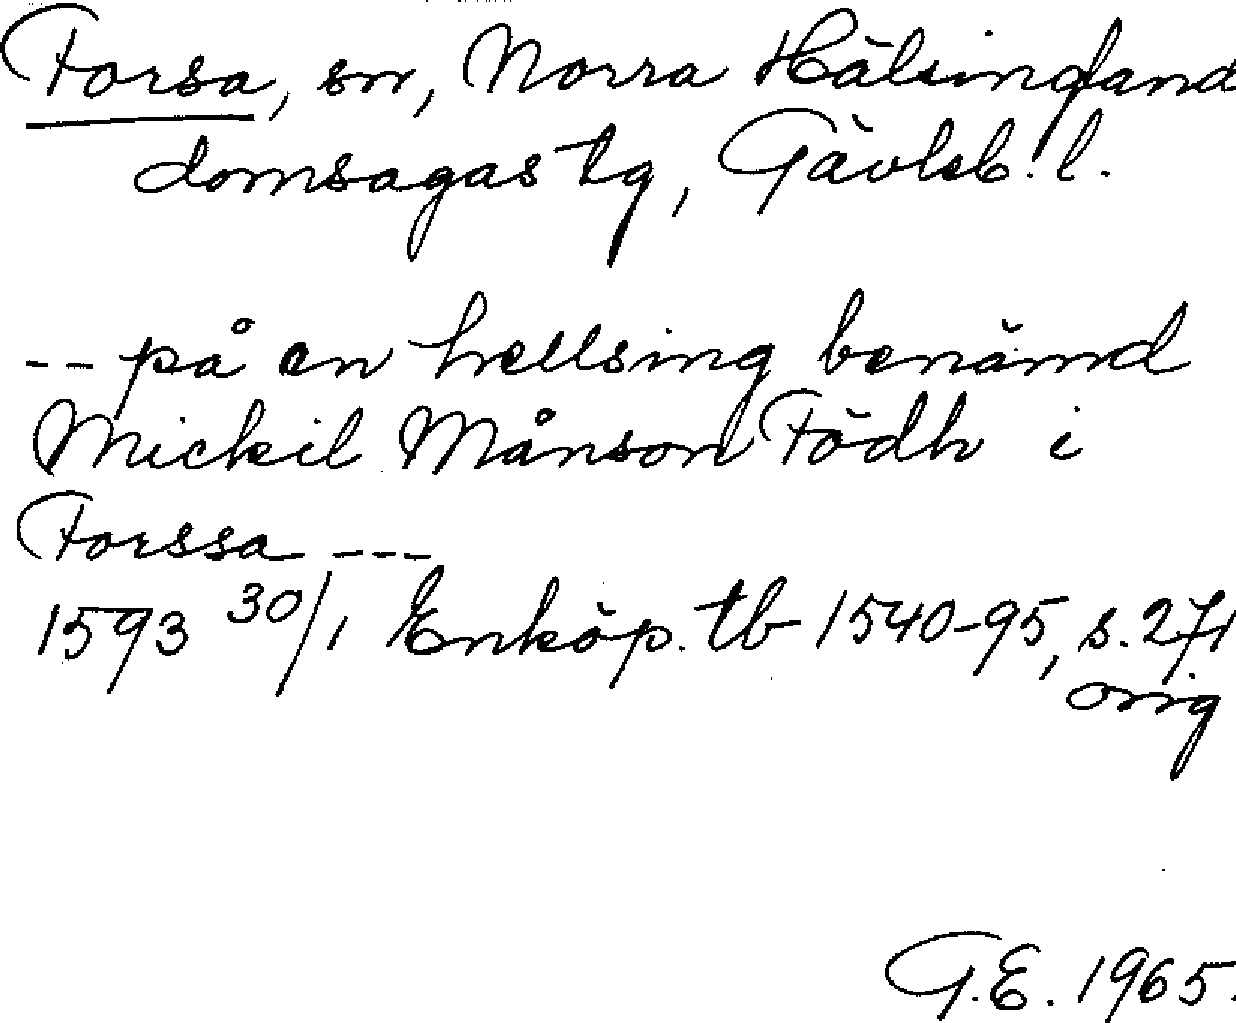 Forsa, sn, Norra Hälsingland
domsagas tg, Gävleb. l.
-- på en hellsing benämd
Mickil Månson Födh i
Forssa ---
1593 30/1 Enköp. tb 1540-95, s. 271
orig
G.E. 1965.